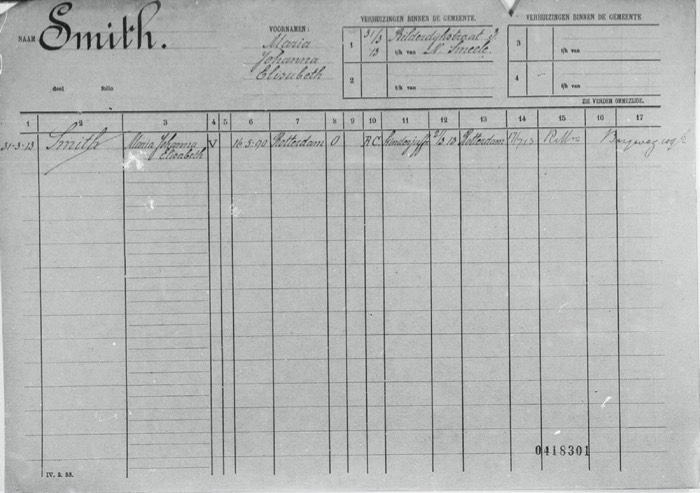 NAAM Smith.
deel folio
VOORNAMEN:
Maria
Johanna
Elisabeth
VERHUIZINGEN BINNEN DE GEMEENTE.
1 31/3 13 Bilderdijkstraat
t/h van N. Smeele.
2
t/h van
VERHUIZINGEN BINNEN DE GEMEENTE
3
t/h van
4
t/h van
ZIE VERDER OMMEZIJDE.
1 2 3 4 5 6 7 8 9 10 11 12 13 14 15 16 17
31-3-13 Smith Maria Johanna V 16-5-90 Rotterdam O R.C. 13 Rotterdam
Elisabeth
0418301
IV. 2. 53.